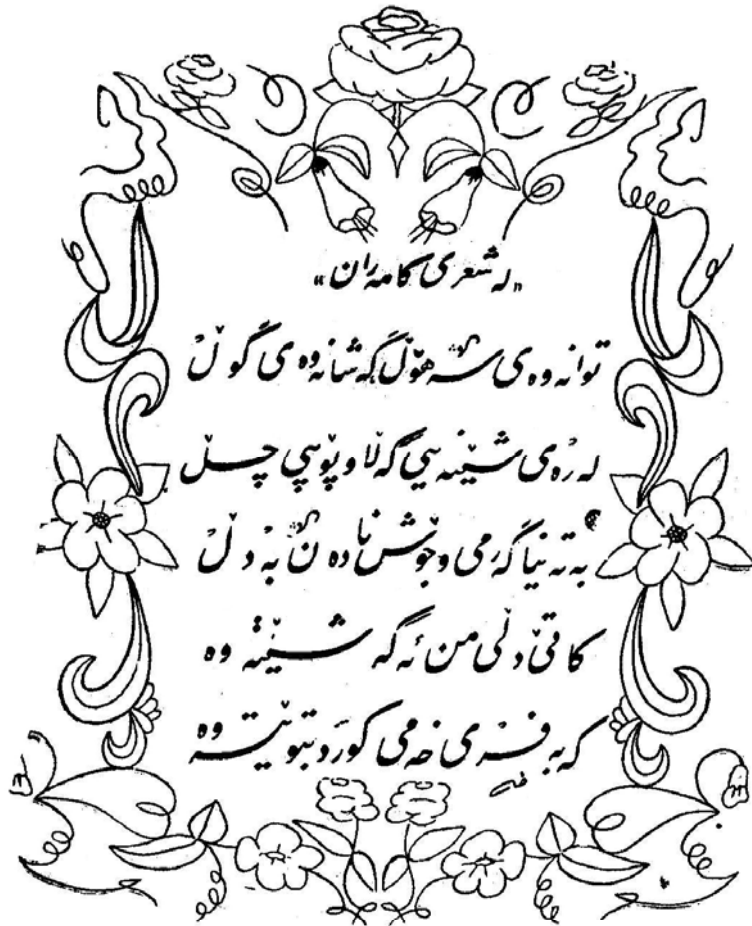 «لە شعری کامەران»
توانەوەی سەهۆڵ گەشانەوەی گوڵ
لەرەی شینەیی گەڵاو پۆپی چڵ
بە تەنیا گەرمی و جۆش نادەن بە دڵ
کاتێ دڵی من ئەگەشێتەوە
کە بەفری خەمی کورد بتوێتەوە